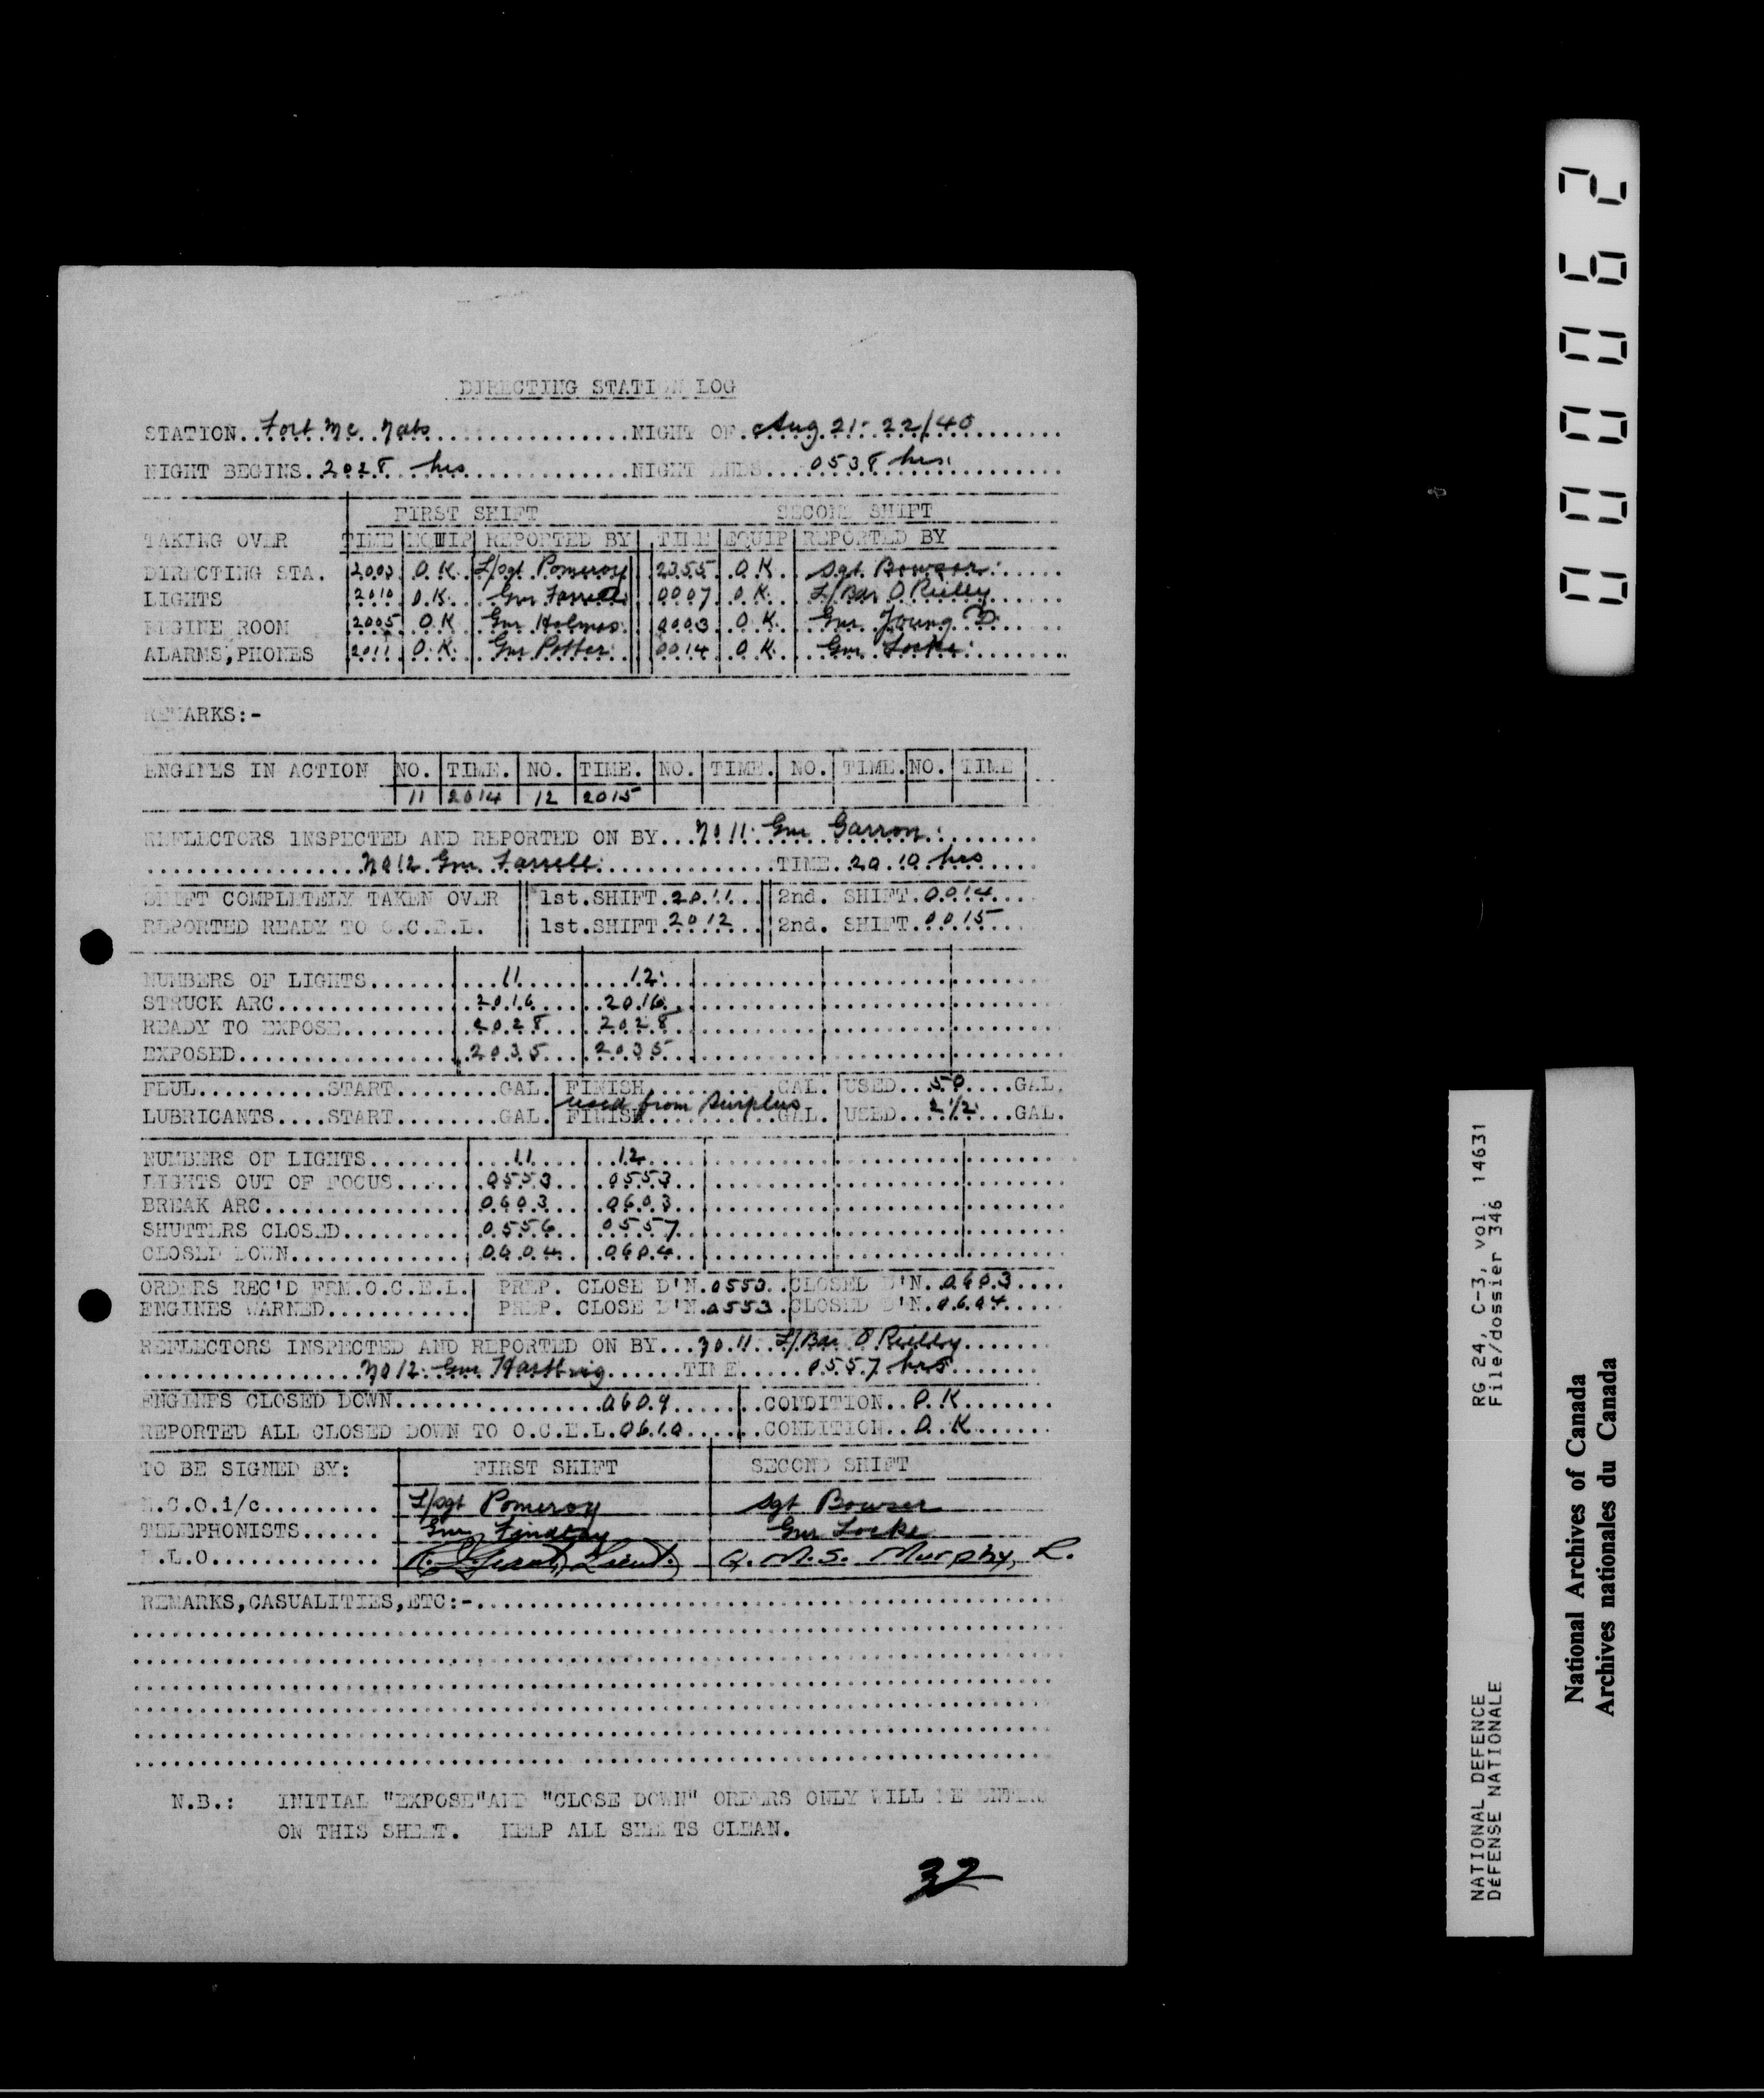 DIRECTING STATION LOG
STATION..Fort Mc Nab................NIGHT OF. Aug. 21-22/40......
NIGHT BEGINS. 2028 hrs................NIGHT ENDS....0538 hrs.......
FIRST SHIFT SECOND SHIFT
TAKING OVER TIME EQUIP REPORTED BY TIME EQUIP REPORTED BY
DIRECTING STA. 2003 O.K. L/Sgt Pomeroy 2355 O.K. Sgt. Bowser
LIGHTS 2010 O.K. Gnr Farrell 0007 O.K. L/Bar O Rielly
ENGINE ROOM 2005 O.K Gnr Holmes 0003 O.K. Gnr. Young D
ALARMS,PHONES 2011 O.K. Gnr Potter 0014 O.K. Gnr. Locke
REMARKS:-
ENGINES IN ACTION NO. TIME. NO. TIME. NO. TIME. NO. TIME. NO. TIME
11 2014 12 2015
REFLECTORS INSPECTED AND REPORTED ON BY...No 11. Gnr Garron.........
................No 12 Gnr Farrell................TIME..20 10 hrs....
SHIFT COMPLETELY TAKEN OVER 1st.SHIFT.2011... 2nd. SHIFT.0014....
REPORTED READY TO O.C.E.L. 1st.SHIFT.2012... 2nd. SHIFT.0015....
NUMBERS OF LIGHTS....... 11 12
STRUCK ARC.............. 2016 2016
READY TO EXPOSE......... 2028 2028
EXPOSED................. 2035 2035
FUEL..........START........GAL. FINISH..........GAL. USED...50....GAL.
used from Surplus
LUBRICANTS....START........GAL. FINISH..........GAL. USED...2 1/2...GAL.
NUMBERS OF LIGHTS....... 11 12
LIGHTS OUT OF FOCUS..... 0553 0553
BREAK ARC............... 0603 0603
SHUTTERS CLOSED......... 0556 0557
CLOSED DOWN............. 0604 0604
ORDERS REC'D FRM.O.C.E.L. PREP. CLOSE D'N.0553..CLOSED D'N.0603....
ENGINES WARNED........... PREP. CLOSE D'N.0553.CLOSED D'N.0604.....
REFLECTORS INSPECTED AND REPORTED ON BY...No.11..L/Bar O Rielly.......
................No 12. Gnr Harttrig......TIME......0557 hrs........
ENGINES CLOSED DOWN................0609.......CONDITION..O.K.......
REPORTED ALL CLOSED DOWN TO O.C.E.L.0610.......CONDITION..O.K......
TO BE SIGNED BY: FIRST SHIFT SECOND SHIFT
N.C.O.i/c......... L/Sgt Pomeroy Sgt Bowser
TELEPHONISTS...... Gnr Findlay Gnr Locke
E.L.O............. Grant, Lieut. Q.M.S. Murphy, R.
REMARKS,CASUALITIES,ETC:-...................................
N.B.: INITIAL "EXPOSE"AND "CLOSE DOWN" ORDERS ONLY WILL BE
ON THIS SHEET. KEEP ALL SHEETS CLEAN.
32
000062
RG 24, C-3, vol. 14631
File/dossier 346
NATIONAL DEFENCE
DÉFENSE NATIONALE
National Archives of Canada
Archives nationales du Canada